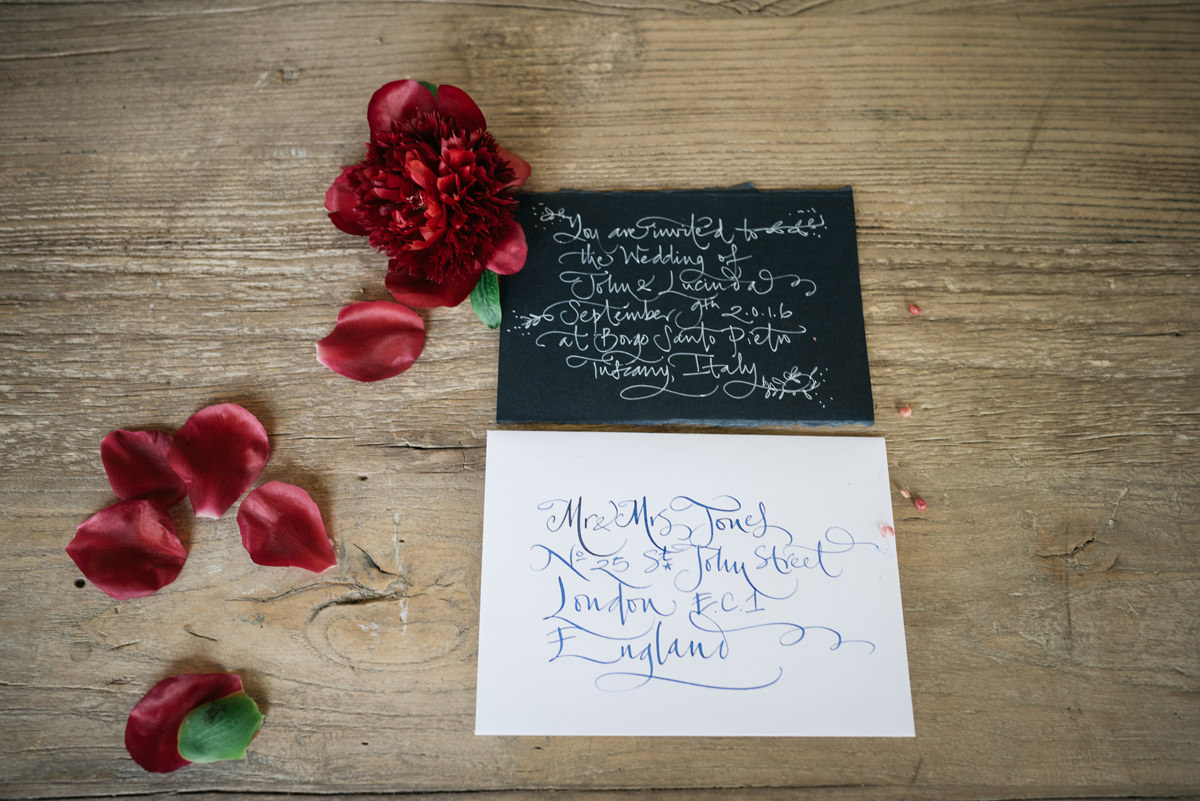 You are invited to
the Wedding of
John & Lucinda
September 9th 2.0.1.6
at Borgo Santo Pietro.
Tuscany, Italy
Mr & Mrs Jones
No 25 St John Street
London E.C.1
England